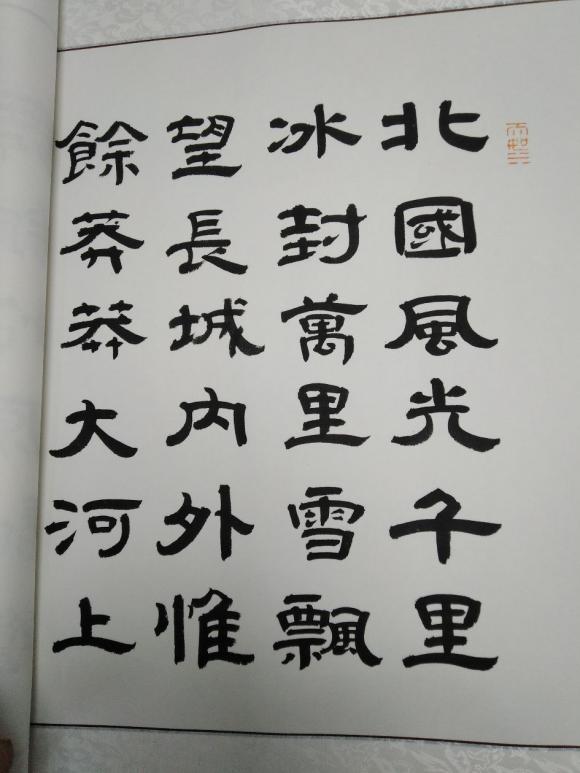 北國風光千里
冰封萬里雪飄
望長城内外惟
餘莽莽大河上